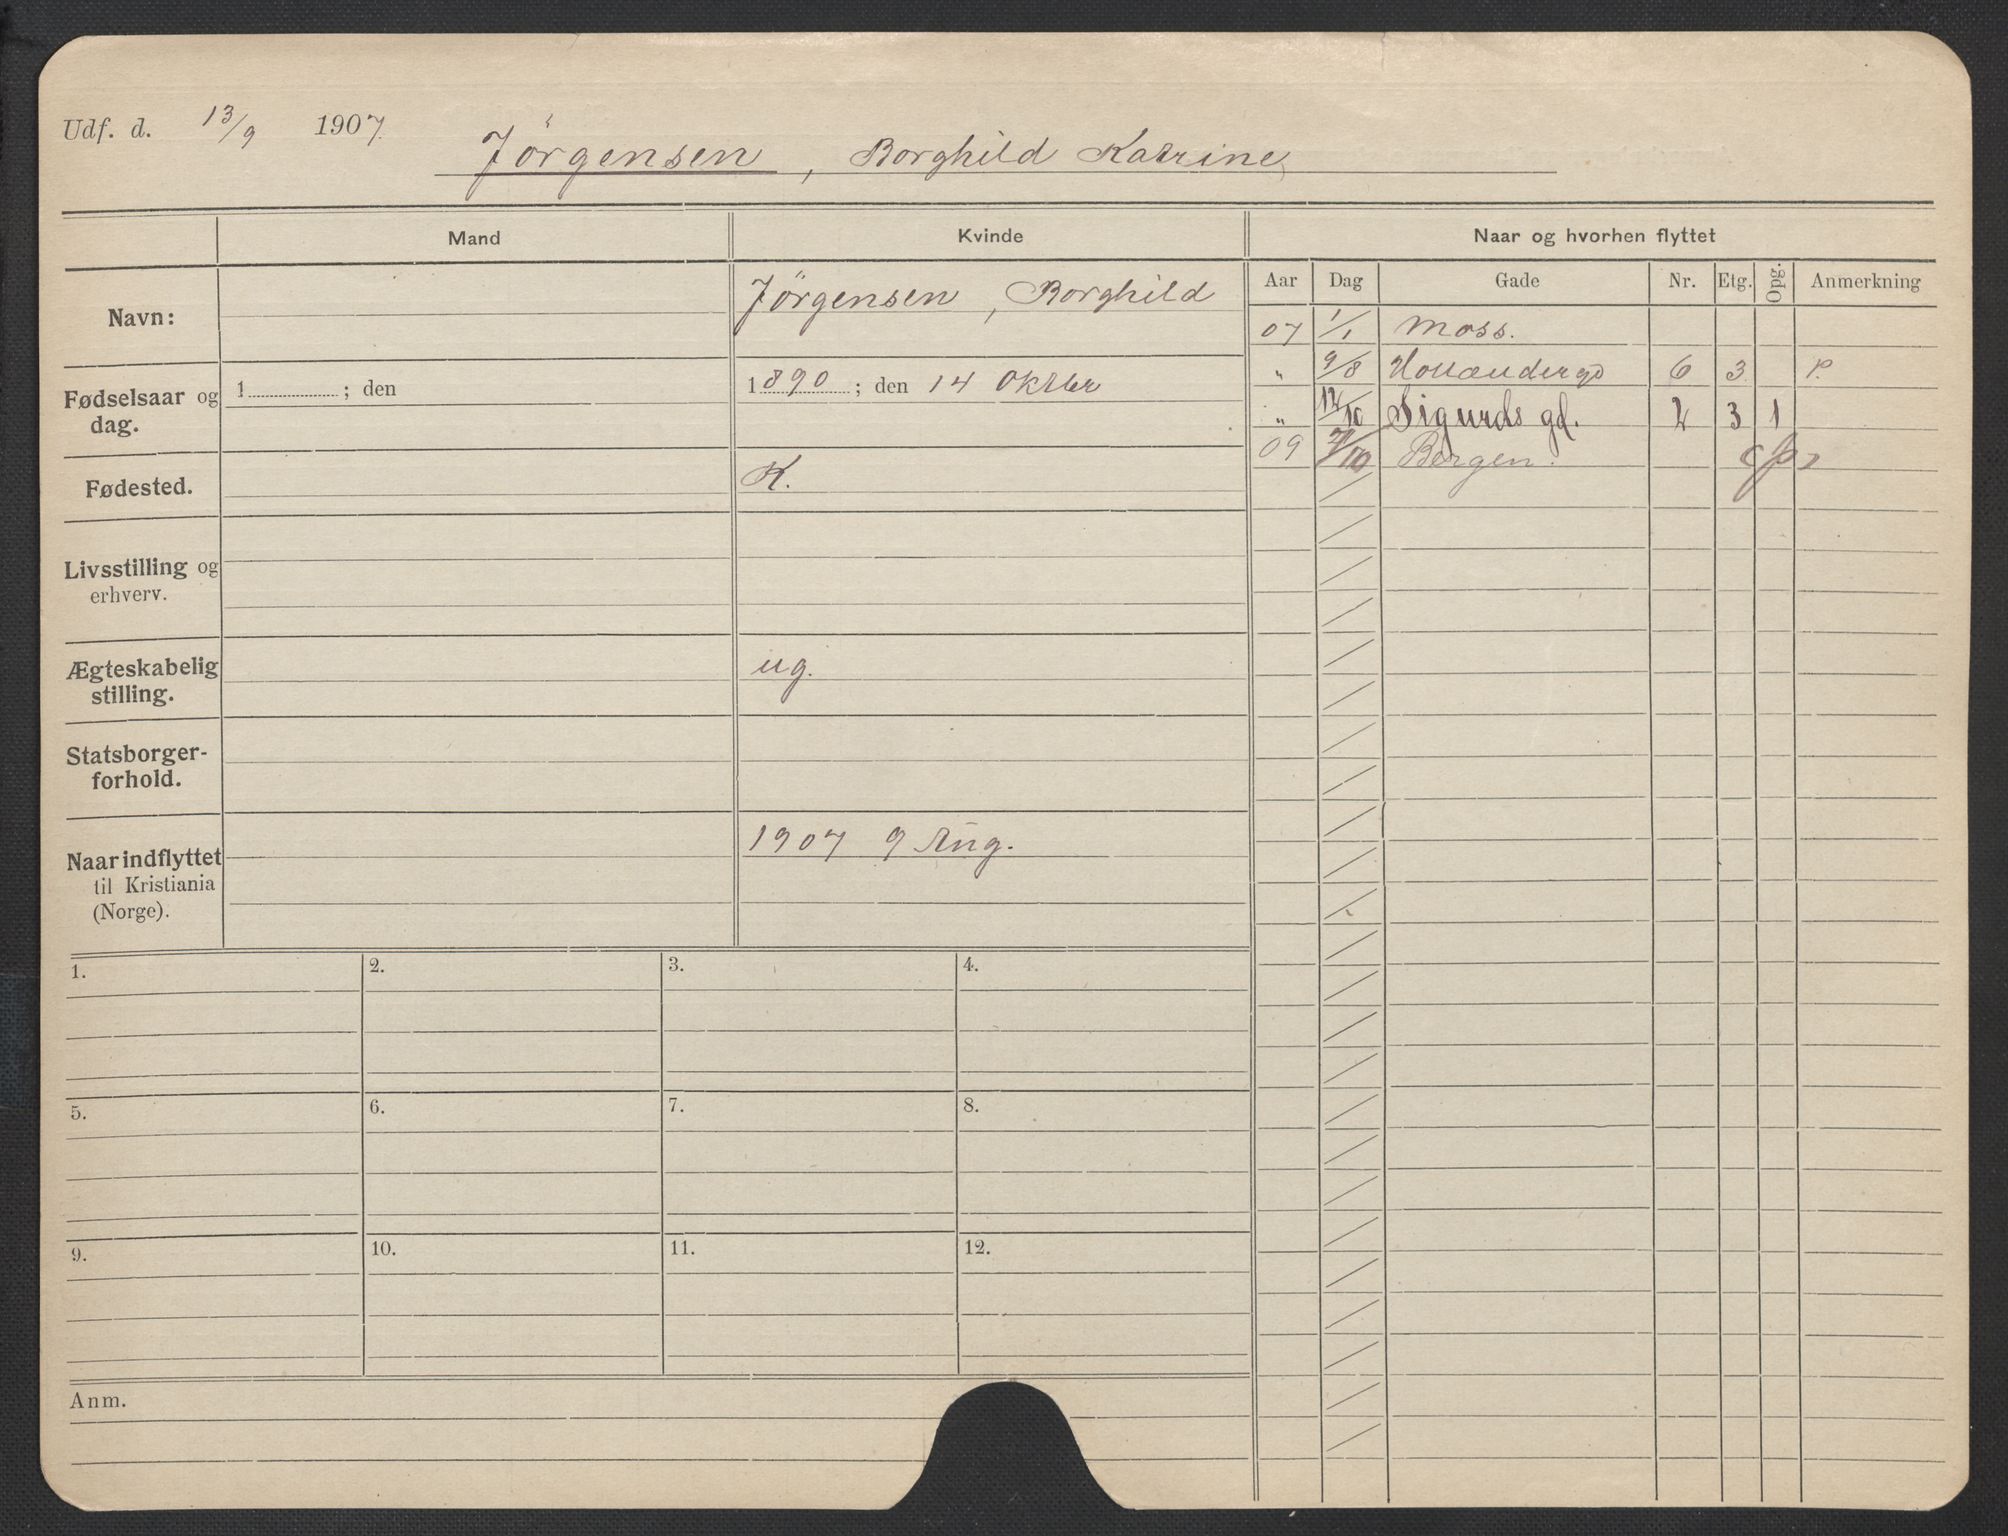 Udf. d. 13/9 1907
Jörgensen, Borghild Katrine
Mand Kvinde Naar og hvorhen flyttet
Aar Dag Gade Nr. Etg. Opg. Anmerkning
Navn: Jörgensen, Borghild
07 1/1 Moss.
Fødselsaar og dag. 1 ; den 1890 ; den 14 Oktber
„ 9/8 Hollændergd 6 3 P.
„ 12/10 Sigurds gd. 2 3 1
09 Bergen.
Fødested. K.
Livsstilling og
erhverv.
Ægteskabelig
stilling. ug.
Statsborger-
forhold.
Naar indflyttet 1907 9 Aug.
til Kristiania
(Norge).
1. 2. 3. 4.
5. 6. 7. 8.
9. 10. 11. 12.
Anm.